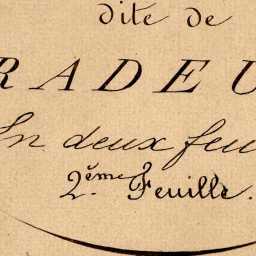 dite de
RADEU
En deux feu
2.ème Feuille.